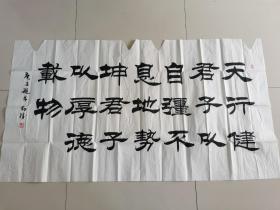 天行健
君子以
自彊不
息地勢
坤君子
以厚德
載物